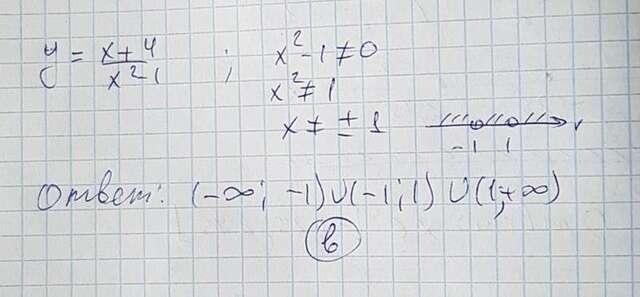 y = x+4 / x²-1 ; x²-1≠0
x²≠1
x ≠ ± 1
-1 1
Ответ: (-∞; -1)∪(-1; 1) ∪(1;+∞)
в